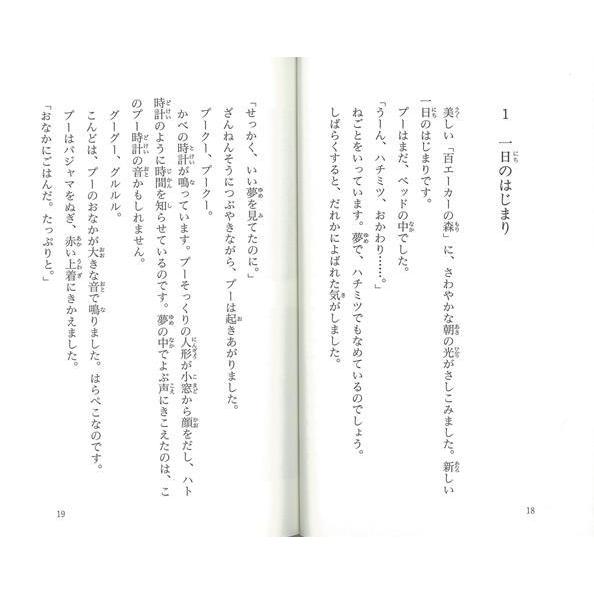 1 一日のはじまり
美しい「百エーカーの森」に、さわやかな朝の光がさしこみました。新しい
一日のはじまりです。
プーはまだ、ベッドの中でした。
「うーん、ハチミツ、おかわり……。」
ねごとをいっています。夢で、ハチミツでもなめているのでしょう。
しばらくすると、だれかによばれた気がしました。
18
「せっかく、いい夢を見てたのに。」
ざんねんそうにつぶやきながら、プーは起きあがりました。
プークー、プークー。
かべの時計が鳴っています。プーそっくりの人形が小窓から顔をだし、ハト
時計のように時間を知らせているのです。夢の中でよぶ声にきこえたのは、こ
のプー時計の音かもしれません。
グーグー、グルルル。
こんどは、プーのおなかが大きな音で鳴りました。はらぺこなのです。
プーはパジャマをぬぎ、赤い上着にきかえました。
「おなかにごはんだ。たっぷりと。」
19